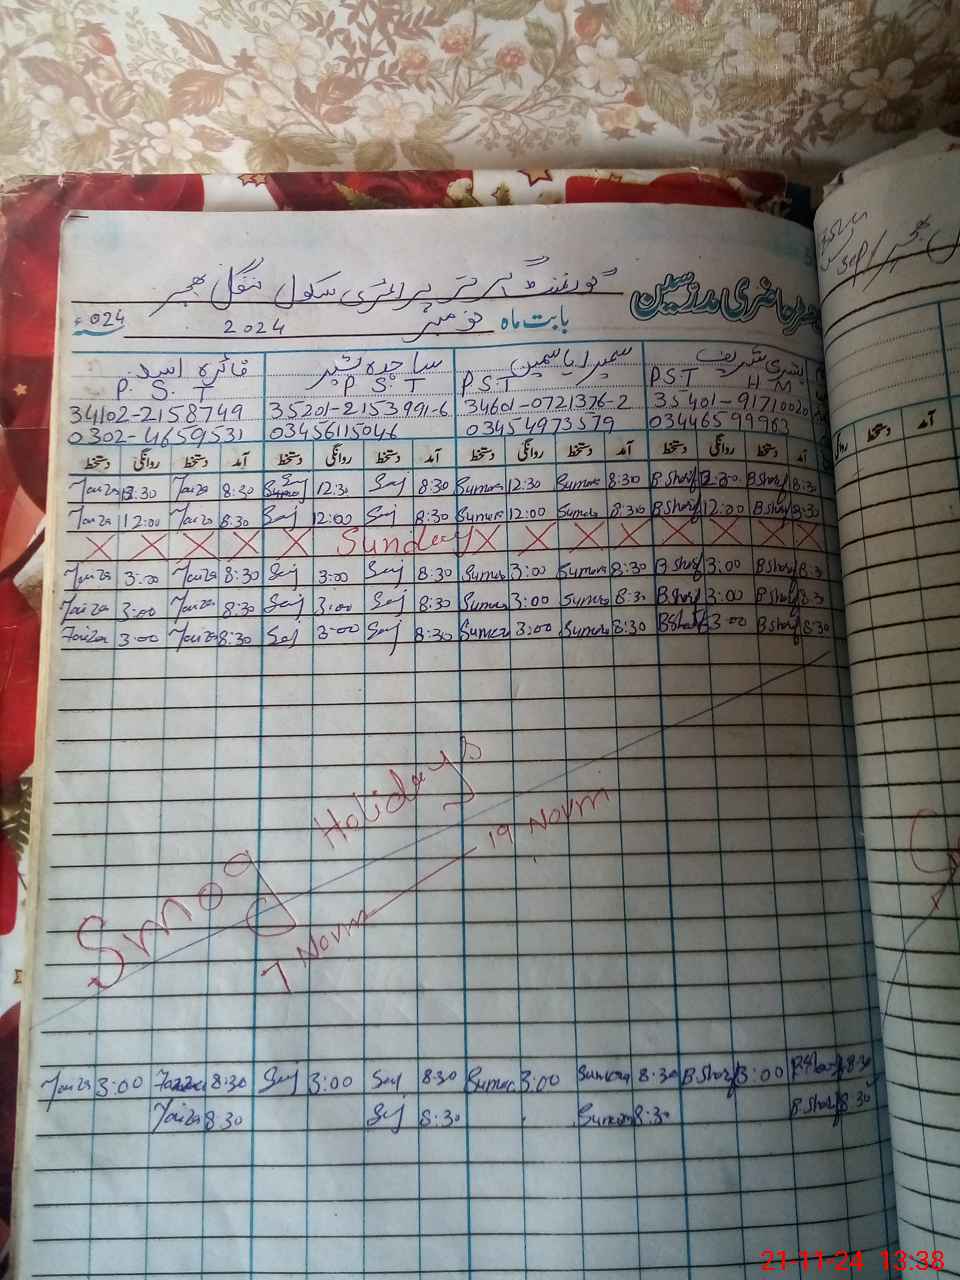 گورنمنٹ گرلز پرائمری سکول منگل
حاضری مدرسین
بابت ماہ نومبر 2024 024ء
بشری شریف سمیرا یاسمین ساجدہ بشیر فائزہ اسد
P.S.T H.M P.S.T P.S.T P.S.T
35401-9171002 34601-0721376-2 35201-2153991-6 34102-2158749
03446599963 03454973579 03456115046 0302-4659531
آمد دستخط روانگی دستخط آمد دستخط روانگی دستخط آمد دستخط روانگی دستخط آمد دستخط روانگی دستخط
Faiza 12:30 Faiza 8:30 Saj 12:30 Saj 8:30 Sumera 12:30 Sumera 8:30 B Sharif 12:30 B Sharif 8:30
Faiza 12:00 Faiza 8:30 Saj 12:00 Saj 8:30 Sumera 12:00 Sumera 8:30 B Sharif 12:00 B Sharif 8:30
X X X X X Sunday X X X X X X X X
Faiza 3:00 Faiza 8:30 Saj 3:00 Saj 8:30 Sumera 3:00 Sumera 8:30 B Sharif 3:00 B Sharif 8:3
Faiza 3:00 Faiza 8:30 Saj 3:00 Saj 8:30 Sumera 3:00 Sumera 8:3 B Sharif 3:00 B Sharif 8:3
Faiza 3:00 Faiza 8:30 Saj 3:00 Saj 8:30 Sumera 3:00 Sumera 8:30 B Sharif 3:00 B Sharif 8:30
Smog Holidays
7 Novm 19 Novm
Faiza 3:00 Faiza 8:30 Saj 3:00 Saj 8:30 Sumera 3:00 Sumera 8:30 B Sharif 3:00 B Sharif 8:30
Faiza 8:30 Saj 8:30 Sumera 8:30 B Sharif 8:30
21-11-24 13:38